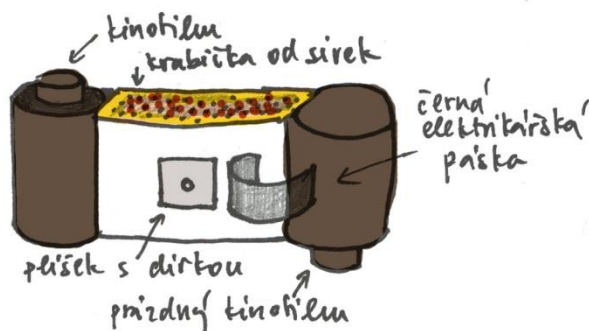 kinofilm
krabička od sirek
černá
elektrikářská
páska
plíšek s dírkou
prázdný kinofilm